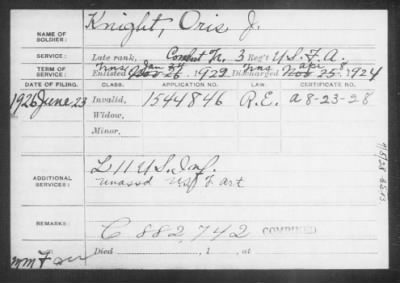 NAME OF SOLDIER: Knight, Oris J.
SERVICE: Late rank, Combat Tr. 3 Reg't U.S.F.A.
Trns Jan 24 Trns apr 8
TERM OF SERVICE: Enlisted Nov 26, 1922 Discharged Nov 25, 1924
DATE OF FILING. CLASS. APPLICATION NO. LAW. CERTIFICATE NO.
1926 June 23 Invalid, 1544846 R.E. a 8-23-28
Widow,
Minor,
ADDITIONAL SERVICES: L 11 U.S. Inf.
unassd US F art
REMARKS: C 882,742 COMBINED
Died , 1 , at